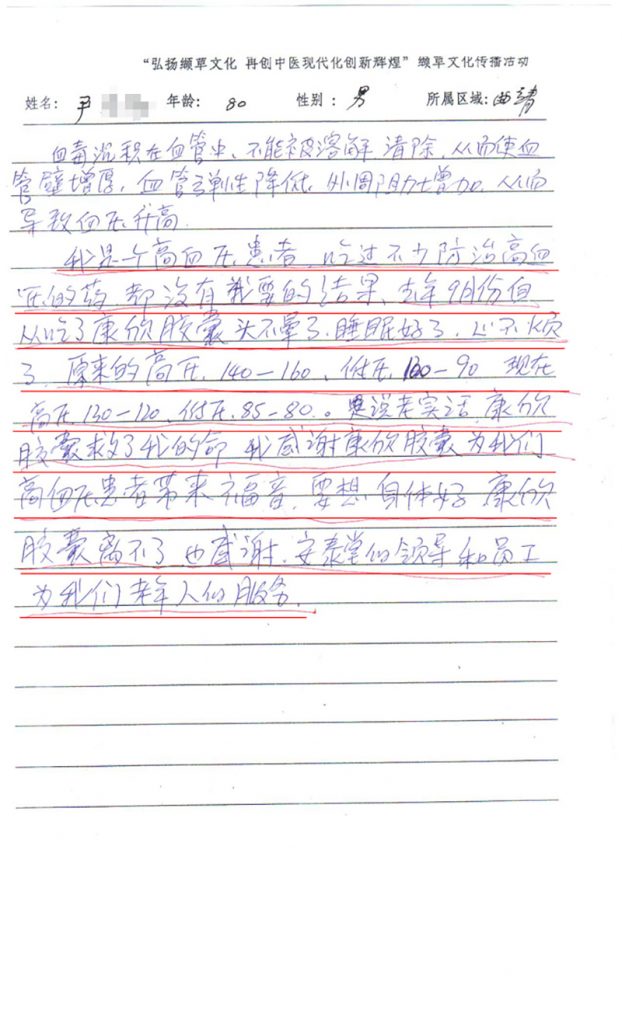 “弘扬缬草文化 再创中医现代化创新辉煌” 缬草文化传播活动
姓名: 尹 年龄: 80 性别: 男 所属区域: 曲靖
血毒沉积在血管中、不能被溶解清除、从而使血
管壁增厚，血管弹性降低、外周阻力增加、从而
导致血压升高.
我是一个高血压患者、吃过不少防治高血
压的药、都没有我要的结果、去年9月份
从吃了康欣胶囊头不晕了、睡眠好了、心不烦
了、原来的高压、140－160、低压、100－90 现在
高压、130－120、低压、85－80。说老实话、康欣
胶囊救了我的命、我感谢康欣胶囊为我们
高血压患者带来福音、要想身体好 康欣
胶囊离不了 也感谢、安泰堂的领导和员工
为我们老年人的服务.